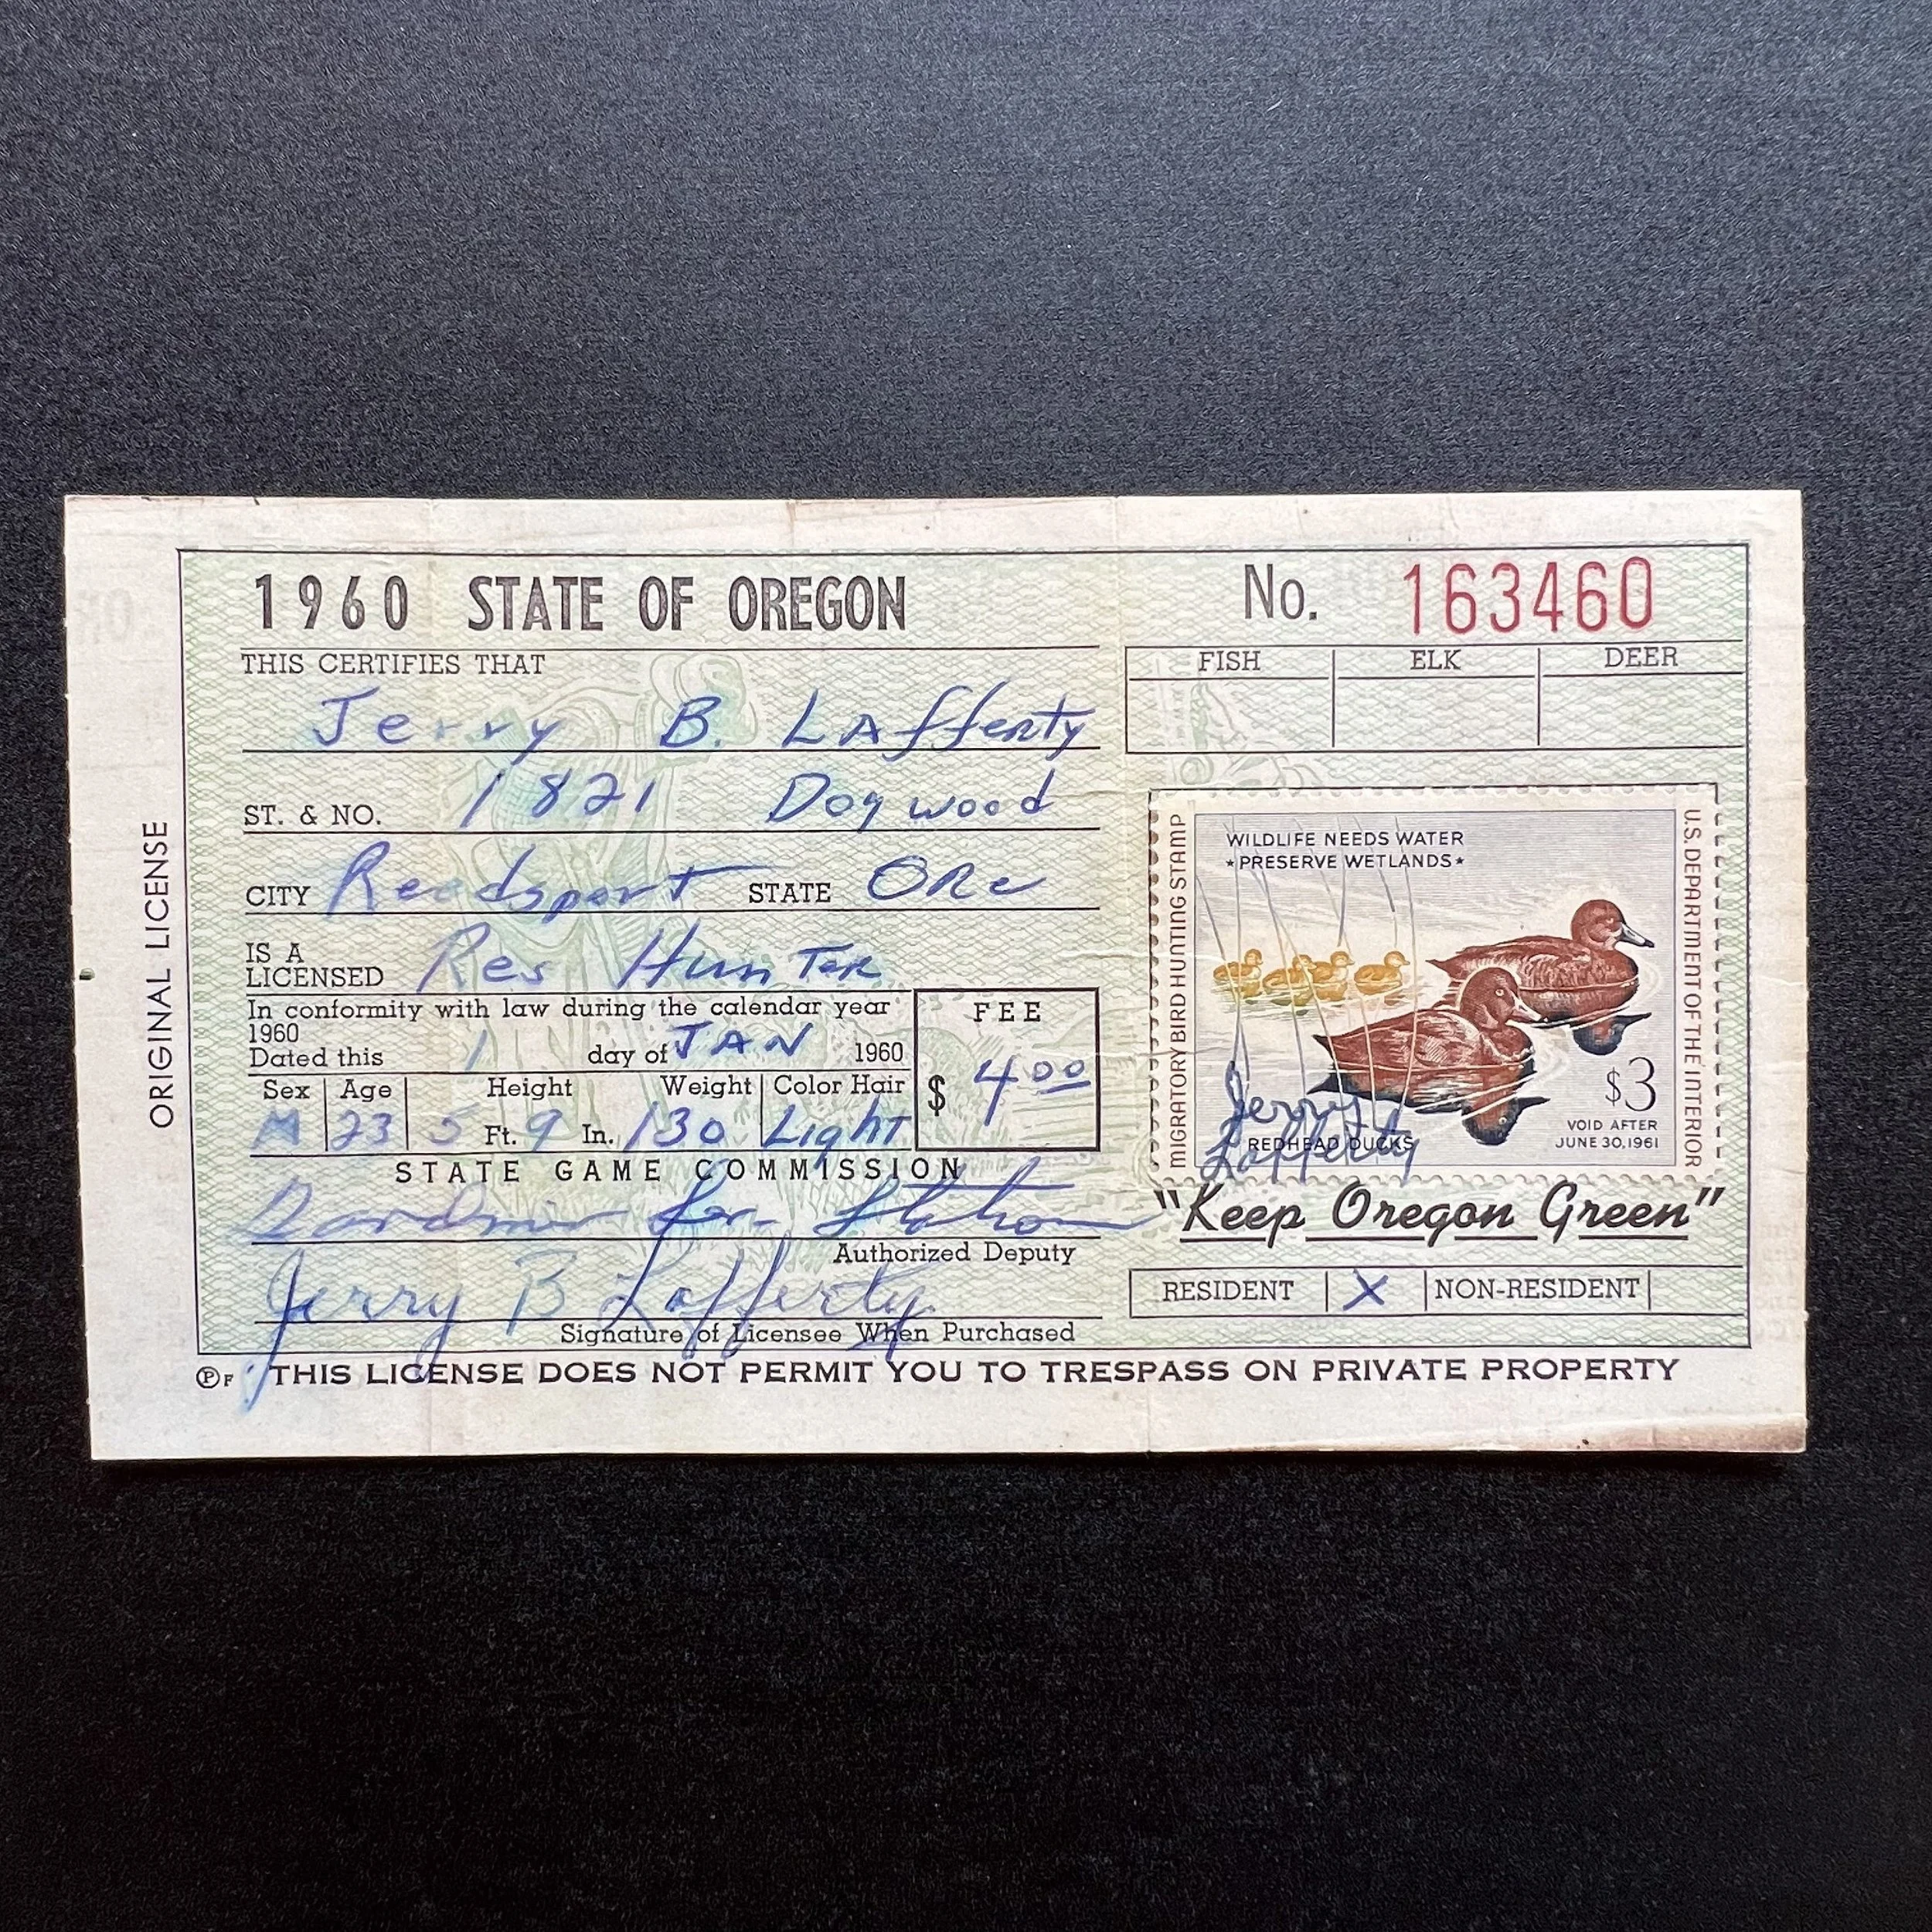 1960 STATE OF OREGON
No. 163460
THIS CERTIFIES THAT
Jerry B. Lafferty
FISH ELK DEER
ST. & NO. 1821 Dogwood
CITY Reedsport STATE Ore
IS A
LICENSED Res Hunter
In conformity with law during the calendar year
1960
Dated this 1 day of JAN 1960
FEE
$ 4.00
Sex Age Height Weight Color Hair
M 23 5 Ft. 9 In. 130 Light
STATE GAME COMMISSION
Authorized Deputy
Jerry B Lafferty
Signature of Licensee When Purchased
ORIGINAL LICENSE
MIGRATORY BIRD HUNTING STAMP
WILDLIFE NEEDS WATER
★PRESERVE WETLANDS★
U.S. DEPARTMENT OF THE INTERIOR
$3
VOID AFTER
JUNE 30, 1961
Jerry
REDHEAD DUCKS
Lafferty
"Keep Oregon Green"
RESIDENT X NON-RESIDENT
Ⓟ F THIS LICENSE DOES NOT PERMIT YOU TO TRESPASS ON PRIVATE PROPERTY